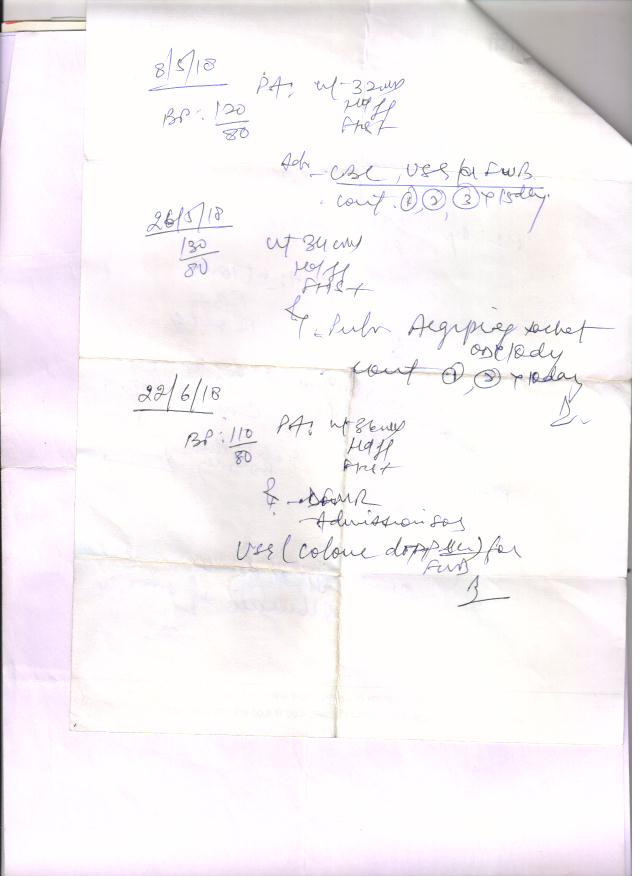 8/5/18 PA: ut-32wks
BP: 120/80 Hdff
FHS+
Adv - CBC, USG for FWB
cont. ①, ②, ③ x 15day
26/5/18
130/80 ut 34wks
Hdff
FHS+
Pulv Argipreg sachet
cont ①, ② x 10day
22/6/18
BP: 110/80 PA: ut 36wks
Hdff
FHS+
- DFMR
- Admission sos
USG (colour doppler) for
FWB